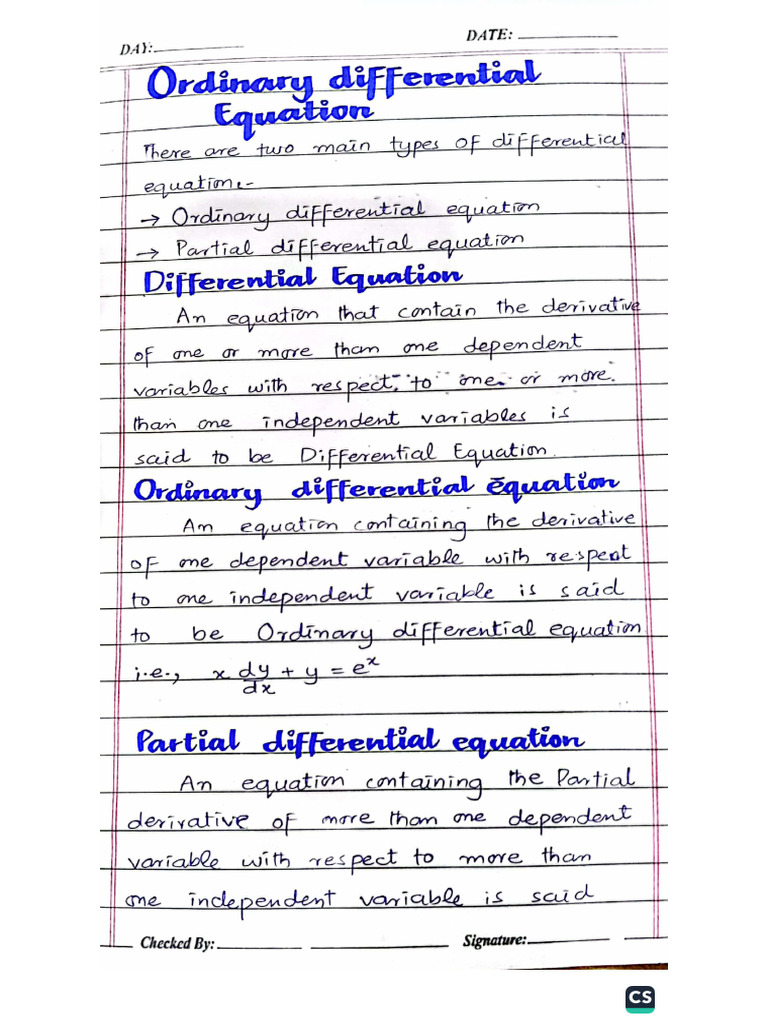 DAY: DATE:
Ordinary differential
Equation
There are two main types of differential
equation.-
→ Ordinary differential equation
→ Partial differential equation
Differential Equation
An equation that contain the derivative
of one or more than one dependent
variables with respect to one or more
than one independent variables is
said to be Differential Equation.
Ordinary differential equation
An equation containing the derivative
of one dependent variable with respect
to one independent variable is said
to be Ordinary differential equation
i.e., x dy/dx + y = eˣ
Partial differential equation
An equation containing the Partial
derivative of more than one dependent
variable with respect to more than
one independent variable is said
Checked By: Signature:
CS